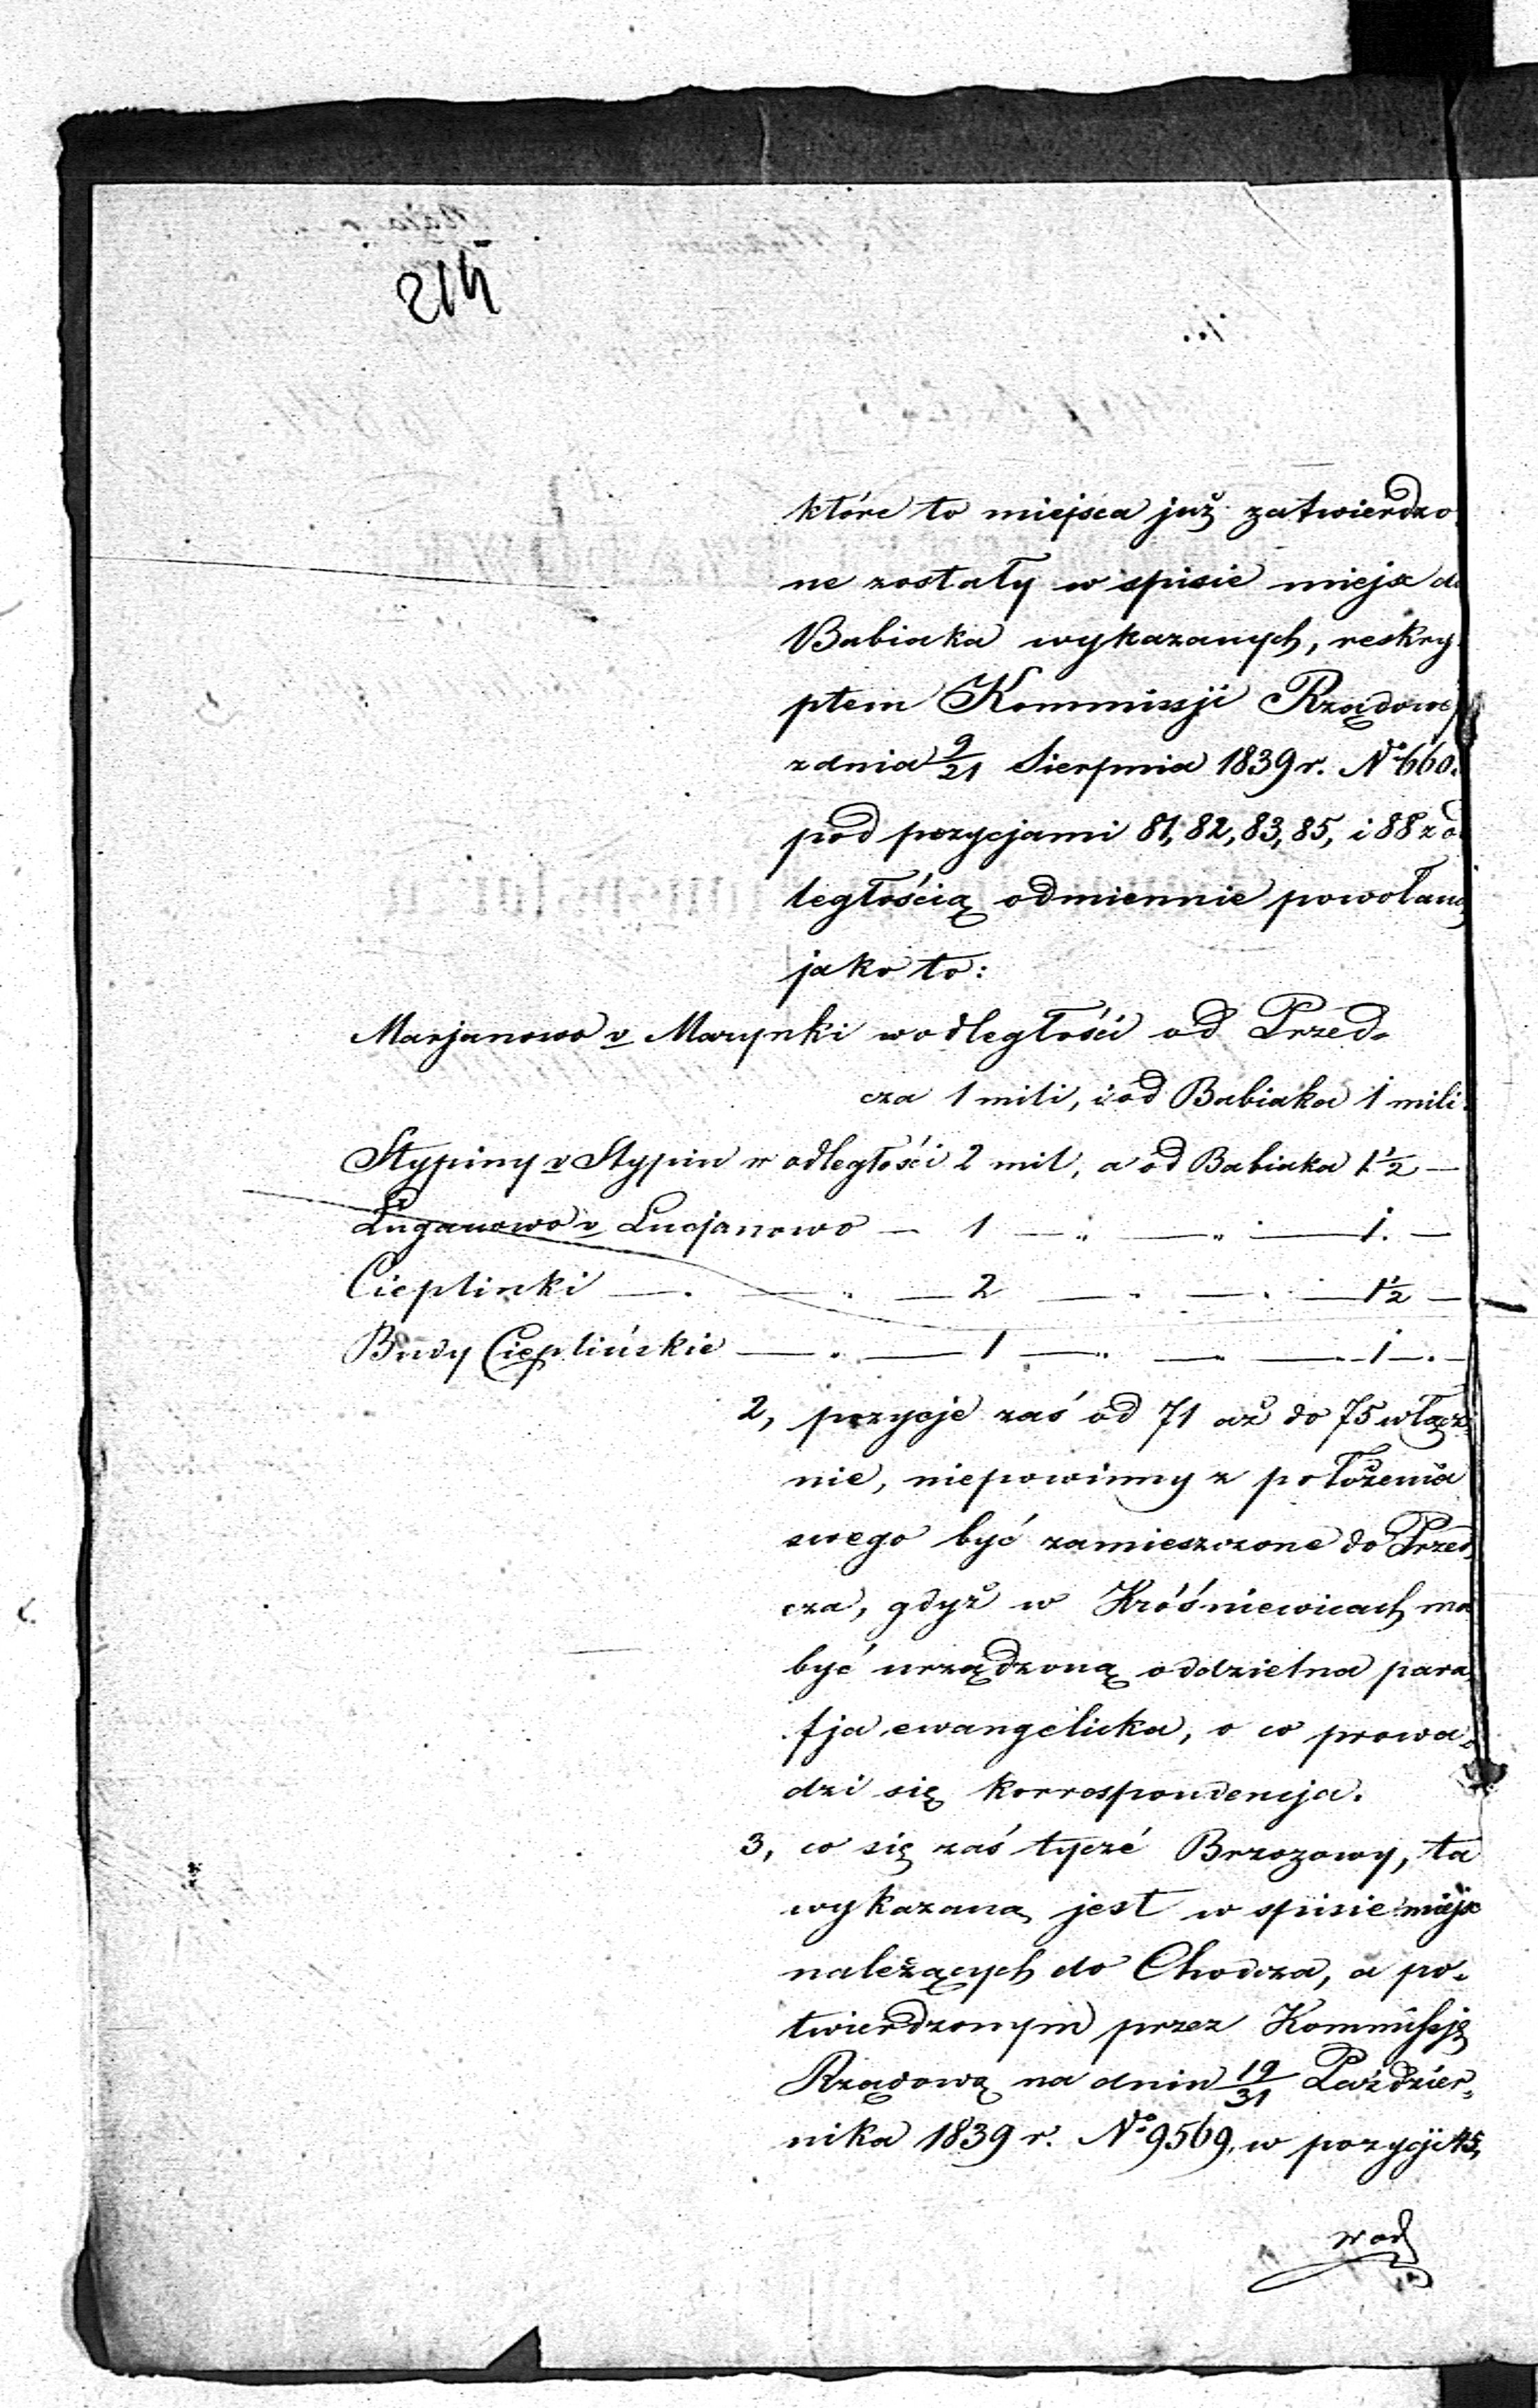 214
które to miejsca już zatwierdzo
ne zostały w spisie miejsc do
Babiaka wykazanych, reskry
ptem Kommissji Rządowej
z dnia 9/21 Sierpnia 1839 r. No 660.
pod pozycjami 81, 82, 83, 85, i 88 z od
ległością odmiennie powołaną
jako to:
Marjanowo v Marynki w odległości od Przed-
cza 1 mili, i od Babiaka 1 mili.
Stypiny v Stypin w odległości 2 mil, a od Babiaka 1 1/2 —
Luganowo v Lucjanowo — 1 — „ — „ — 1. —
Cieplinki — . — „ — 2 — . — . — 1 1/2 —
Budy Cieplińskie — „ — 1 — „ — „ — 1 — . —
2, pozycje zaś od 71 aż do 75 włącz
nie, niepowinny z położenia
swego być zamieszczone do Przed
cza, gdyż w Króśniewicach ma
być urządzoną oddzielna para
fja ewangelicka, o co prowa-
dzi się korrespondencja.
3, co się zaś tyczé Brzozowy, ta
wykazaną jest w spisie miejsc
należących do Chodcza, a po-
twierdzonym przez Kommissję
Rządową na dniu 19/31 Paździer-
nika 1839 r. No 9569, w pozycji 45,
w od